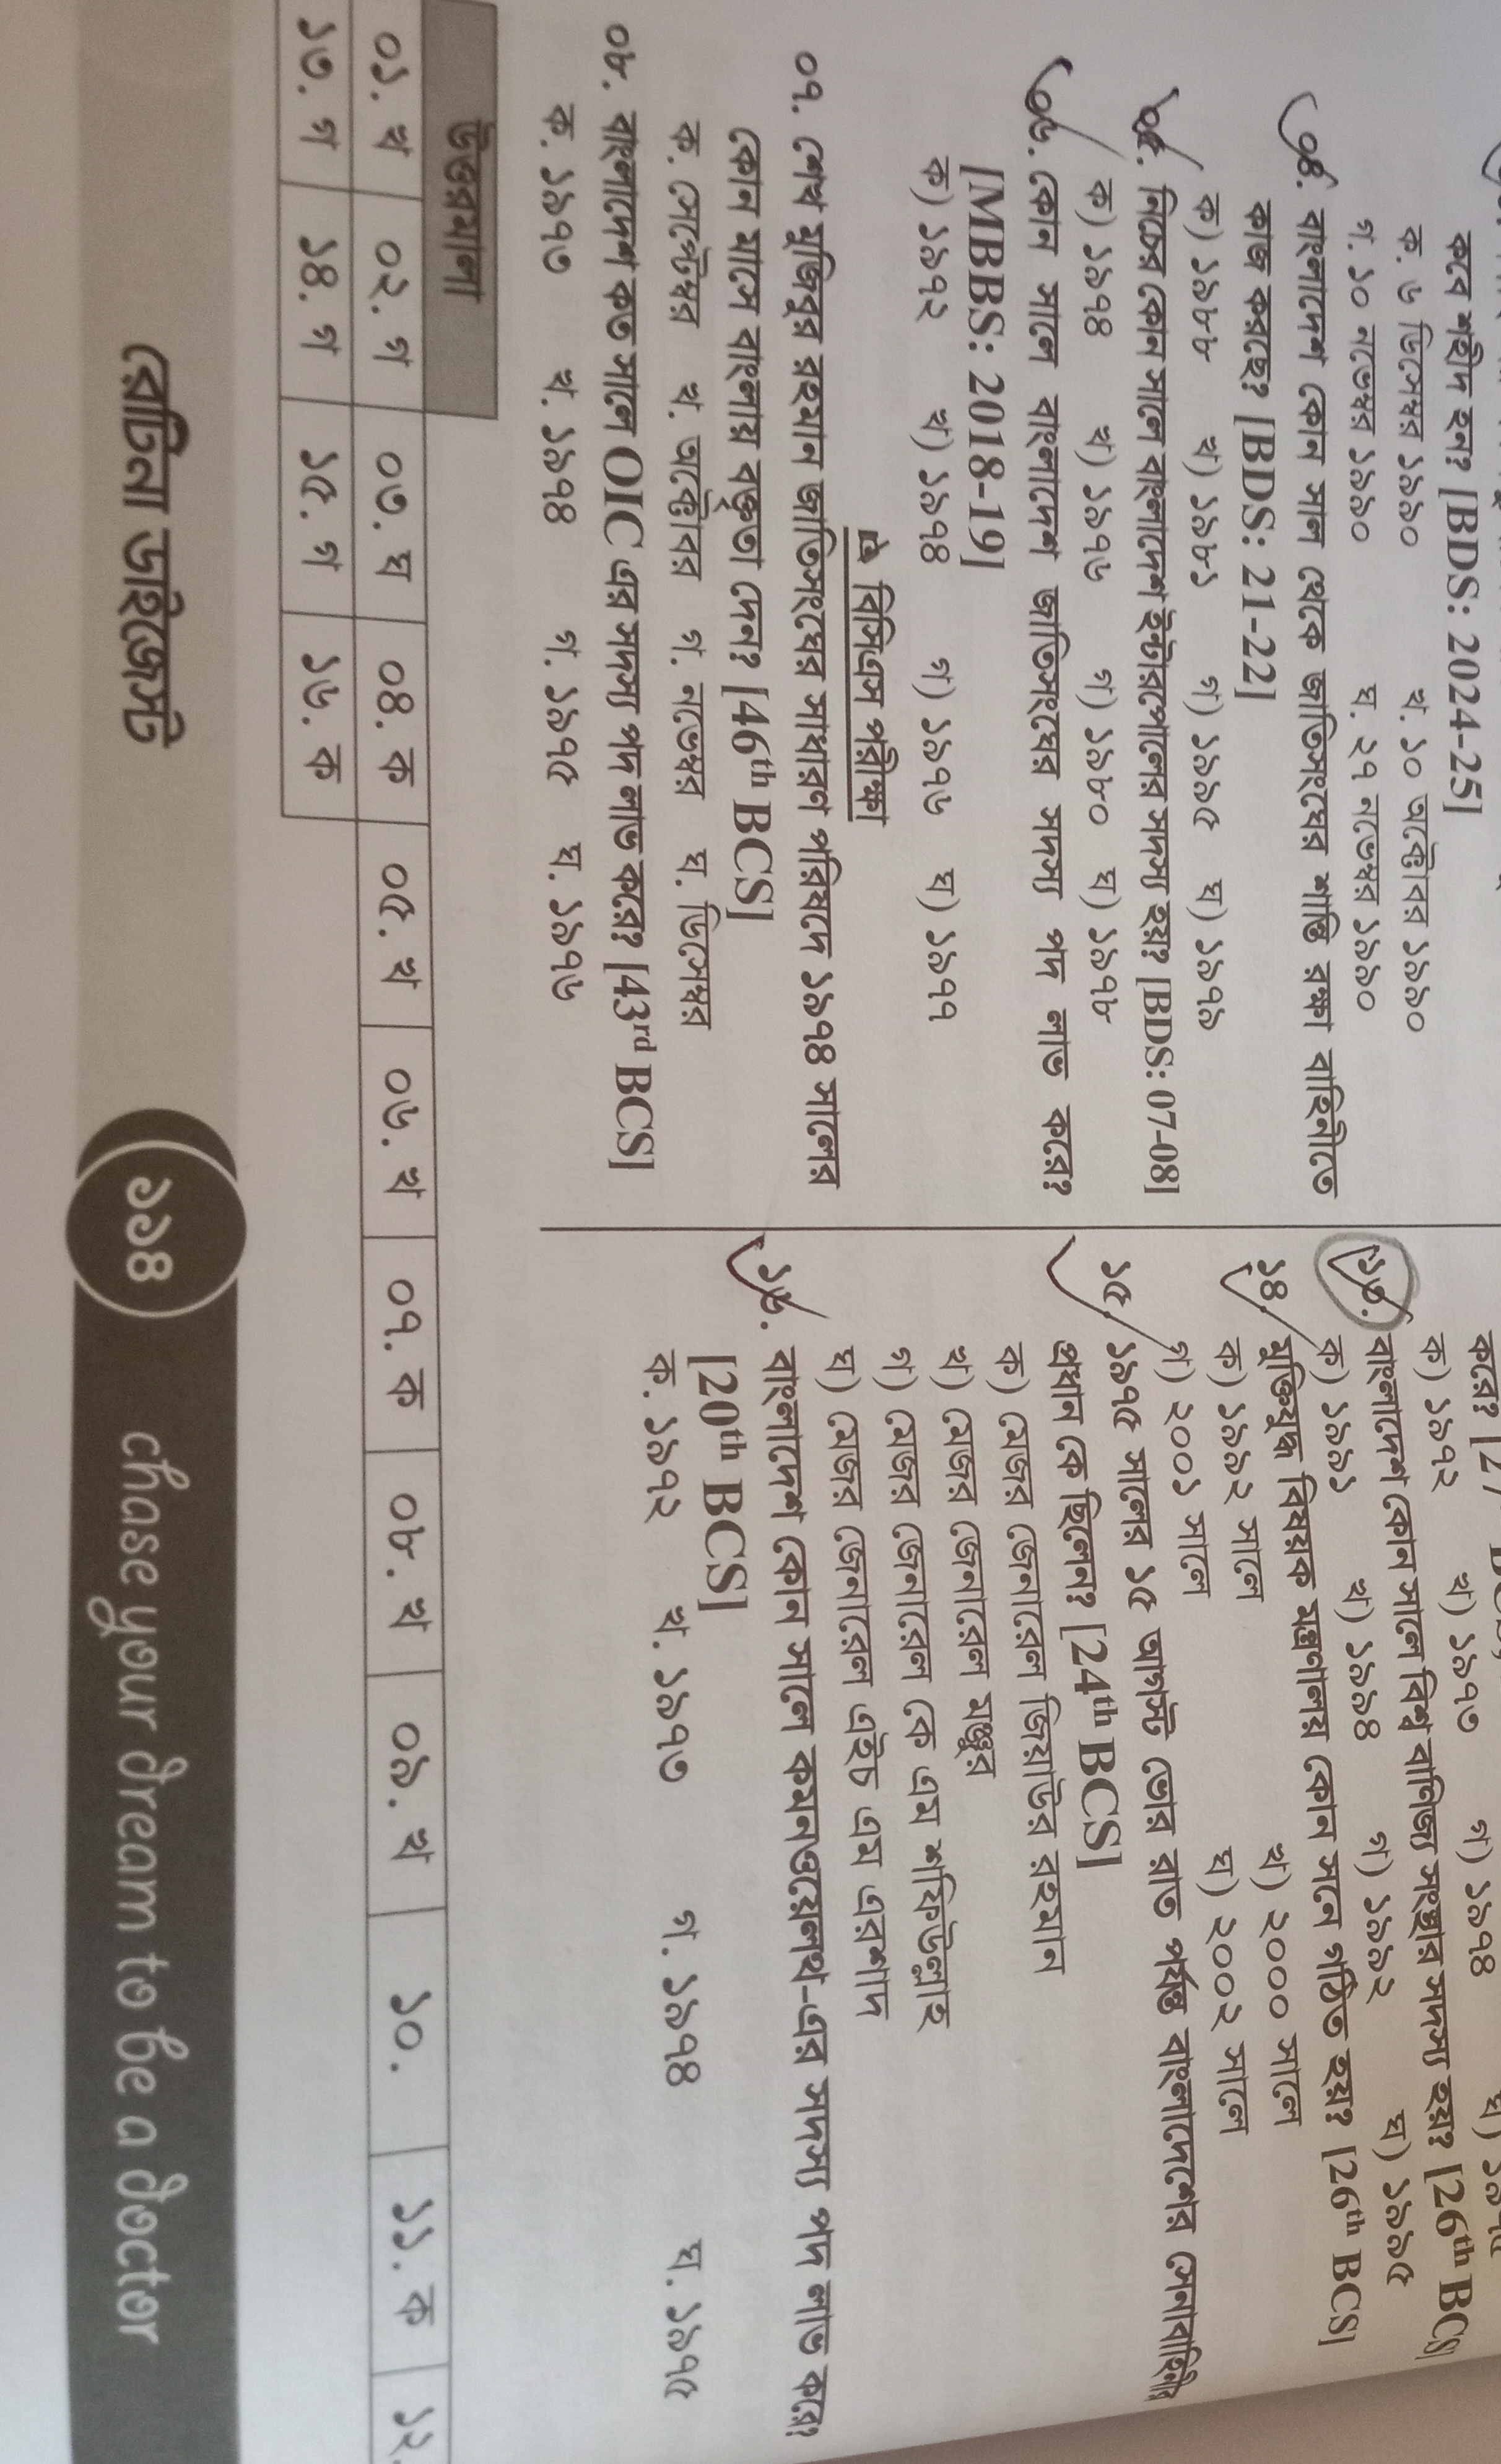 কবে শহীদ হন? [BDS: 2024-25]
ক. ৬ ডিসেম্বর ১৯৯০ খ. ১০ অক্টোবর ১৯৯০
গ. ১০ নভেম্বর ১৯৯০ ঘ. ২৭ নভেম্বর ১৯৯০
০৪. বাংলাদেশ কোন সাল থেকে জাতিসংঘের শান্তি রক্ষা বাহিনীতে
কাজ করছে? [BDS: 21-22]
ক) ১৯৮৮ খ) ১৯৮১ গ) ১৯৯৫ ঘ) ১৯৭৯
০৫. নিচের কোন সালে বাংলাদেশ ইন্টারপোলের সদস্য হয়? [BDS: 07-08]
ক) ১৯৭৪ খ) ১৯৭৬ গ) ১৯৮০ ঘ) ১৯৭৮
০৬. কোন সালে বাংলাদেশ জাতিসংঘের সদস্য পদ লাভ করে?
[MBBS: 2018-19]
ক) ১৯৭২ খ) ১৯৭৪ গ) ১৯৭৬ ঘ) ১৯৭৭
বিসিএস পরীক্ষা
০৭. শেখ মুজিবুর রহমান জাতিসংঘের সাধারণ পরিষদে ১৯৭৪ সালের
কোন মাসে বাংলায় বক্তৃতা দেন? [46th BCS]
ক. সেপ্টেম্বর খ. অক্টোবর গ. নভেম্বর ঘ. ডিসেম্বর
০৮. বাংলাদেশ কত সালে OIC এর সদস্য পদ লাভ করে? [43rd BCS]
ক. ১৯৭৩ খ. ১৯৭৪ গ. ১৯৭৫ ঘ. ১৯৭৬
করে? [27
ক) ১৯৭২ খ) ১৯৭৩ গ) ১৯৭৪
১৩. বাংলাদেশ কোন সালে বিশ্ব বাণিজ্য সংস্থার সদস্য হয়? [26th BCS]
ক) ১৯৯১ খ) ১৯৯৪ গ) ১৯৯২ ঘ) ১৯৯৫
১৪. মুক্তিযুদ্ধ বিষয়ক মন্ত্রণালয় কোন সনে গঠিত হয়? [26th BCS]
ক) ১৯৯২ সালে খ) ২০০০ সালে
গ) ২০০১ সালে ঘ) ২০০২ সালে
১৫. ১৯৭৫ সালের ১৫ আগস্ট ভোর রাত পর্যন্ত বাংলাদেশের সেনাবাহিনীর
প্রধান কে ছিলেন? [24th BCS]
ক) মেজর জেনারেল জিয়াউর রহমান
খ) মেজর জেনারেল মঞ্জুর
গ) মেজর জেনারেল কে এম শফিউল্লাহ
ঘ) মেজর জেনারেল এইচ এম এরশাদ
১৬. বাংলাদেশ কোন সালে কমনওয়েলথ-এর সদস্য পদ লাভ করে?
[20th BCS]
ক. ১৯৭২ খ. ১৯৭৩ গ. ১৯৭৪ ঘ. ১৯৭৫
উত্তরমালা
০১. খ ০২. গ ০৩. ঘ ০৪. ক ০৫. খ ০৬. খ ০৭. ক ০৮. খ ০৯. খ ১০. ১১. ক ১২.
১৩. গ ১৪. গ ১৫. গ ১৬. ক
রেটিনা ডাইজেস্ট
১১৪
chase your dream to be a doctor